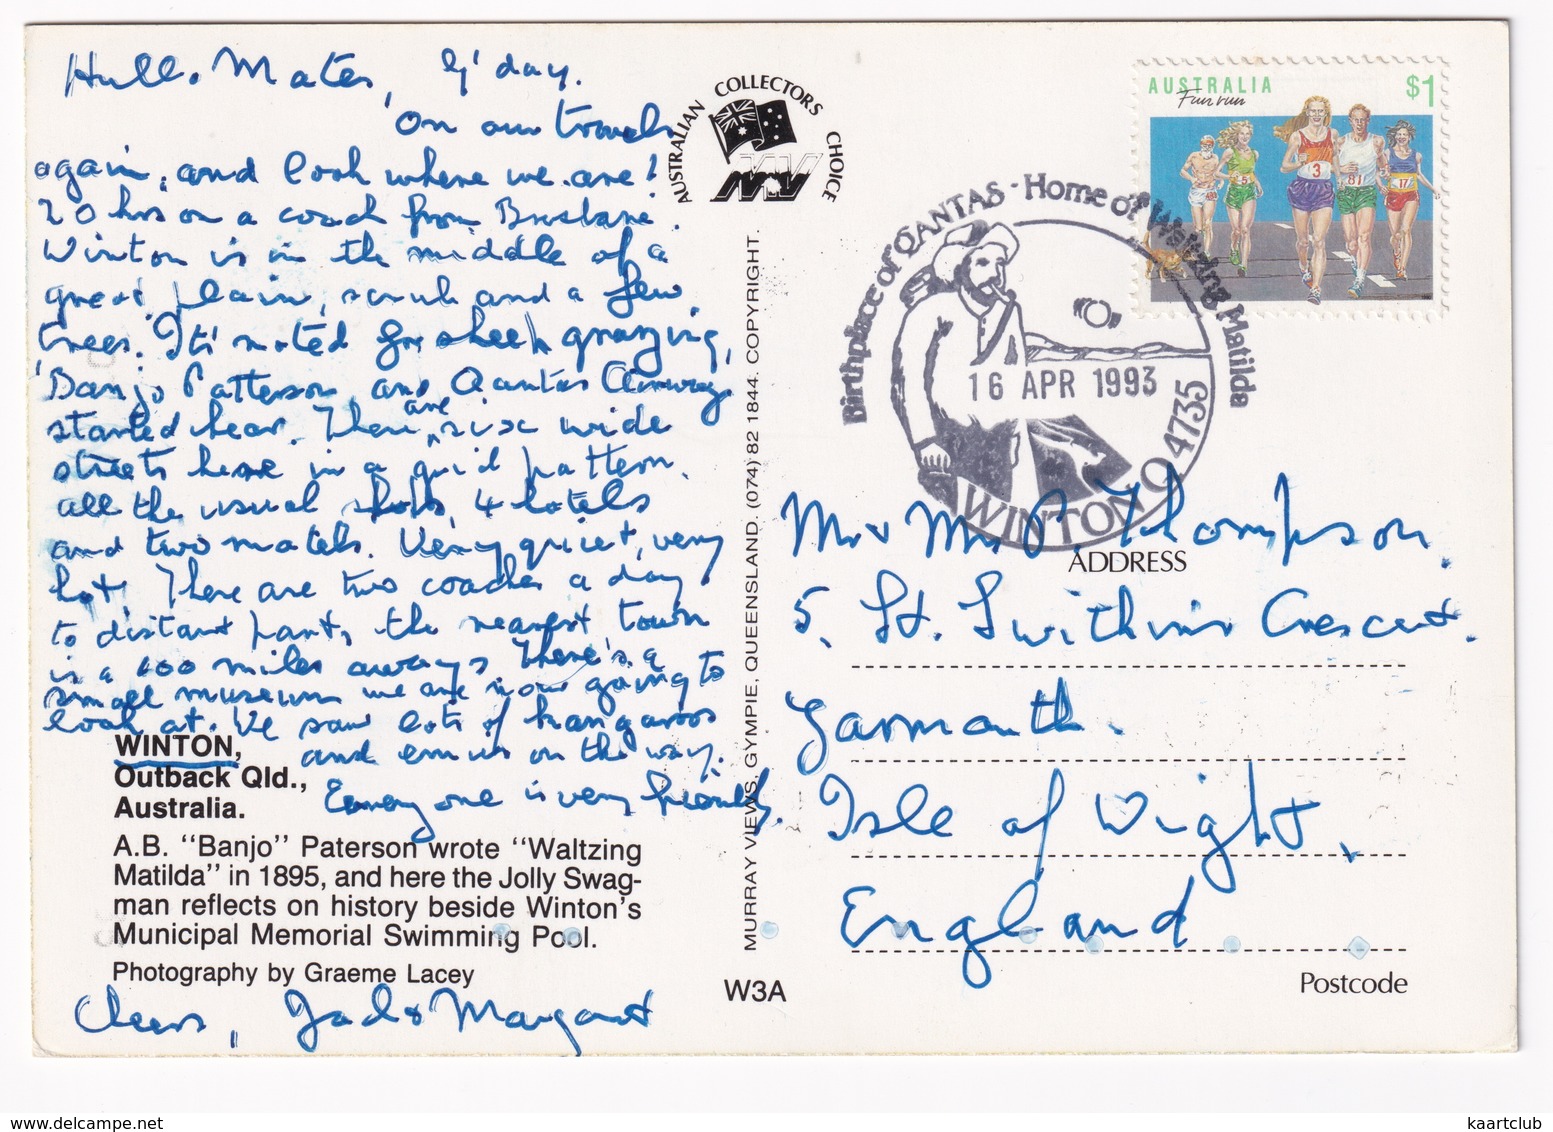 Hullo Mates, G'day.
On our travels
again, and look where we are!
20 hrs on a coach from Brisbane.
Winton is in the middle of a
great plain, scrub and a few
trees. It's noted for sheep grazing,
'Banjo Patterson, and Qantas Airways
started hear. There are six wide
streets here in a grid pattern.
all the usual shops, 4 hotels
and two motels. Very quiet, very
hot. There are two coaches a day
to distant parts, the nearest town
is a 100 miles away. There's a
small museum we are now going to
look at. We saw lots of kangaroos
and emus on the way.
Everyone is very friendly.
WINTON,
Outback Qld.,
Australia.
A.B. "Banjo" Paterson wrote "Waltzing
Matilda" in 1895, and here the Jolly Swag-
man reflects on history beside Winton's
Municipal Memorial Swimming Pool.
Photography by Graeme Lacey
Cheers, Jack & Margaret
AUSTRALIAN COLLECTORS CHOICE
MURRAY VIEWS, GYMPIE, QUEENSLAND. (074) 82 1844. COPYRIGHT.
W3A
AUSTRALIA $1
Fun run
3
81
17
Birthplace of QANTAS · Home of Waltzing Matilda
16 APR 1993
WINTON Q 4735
Mr & Mrs P. Thompson.
ADDRESS
5, St. Swithins Crescent.
Yarmouth.
Isle of Wight,
England
Postcode
kaartclub